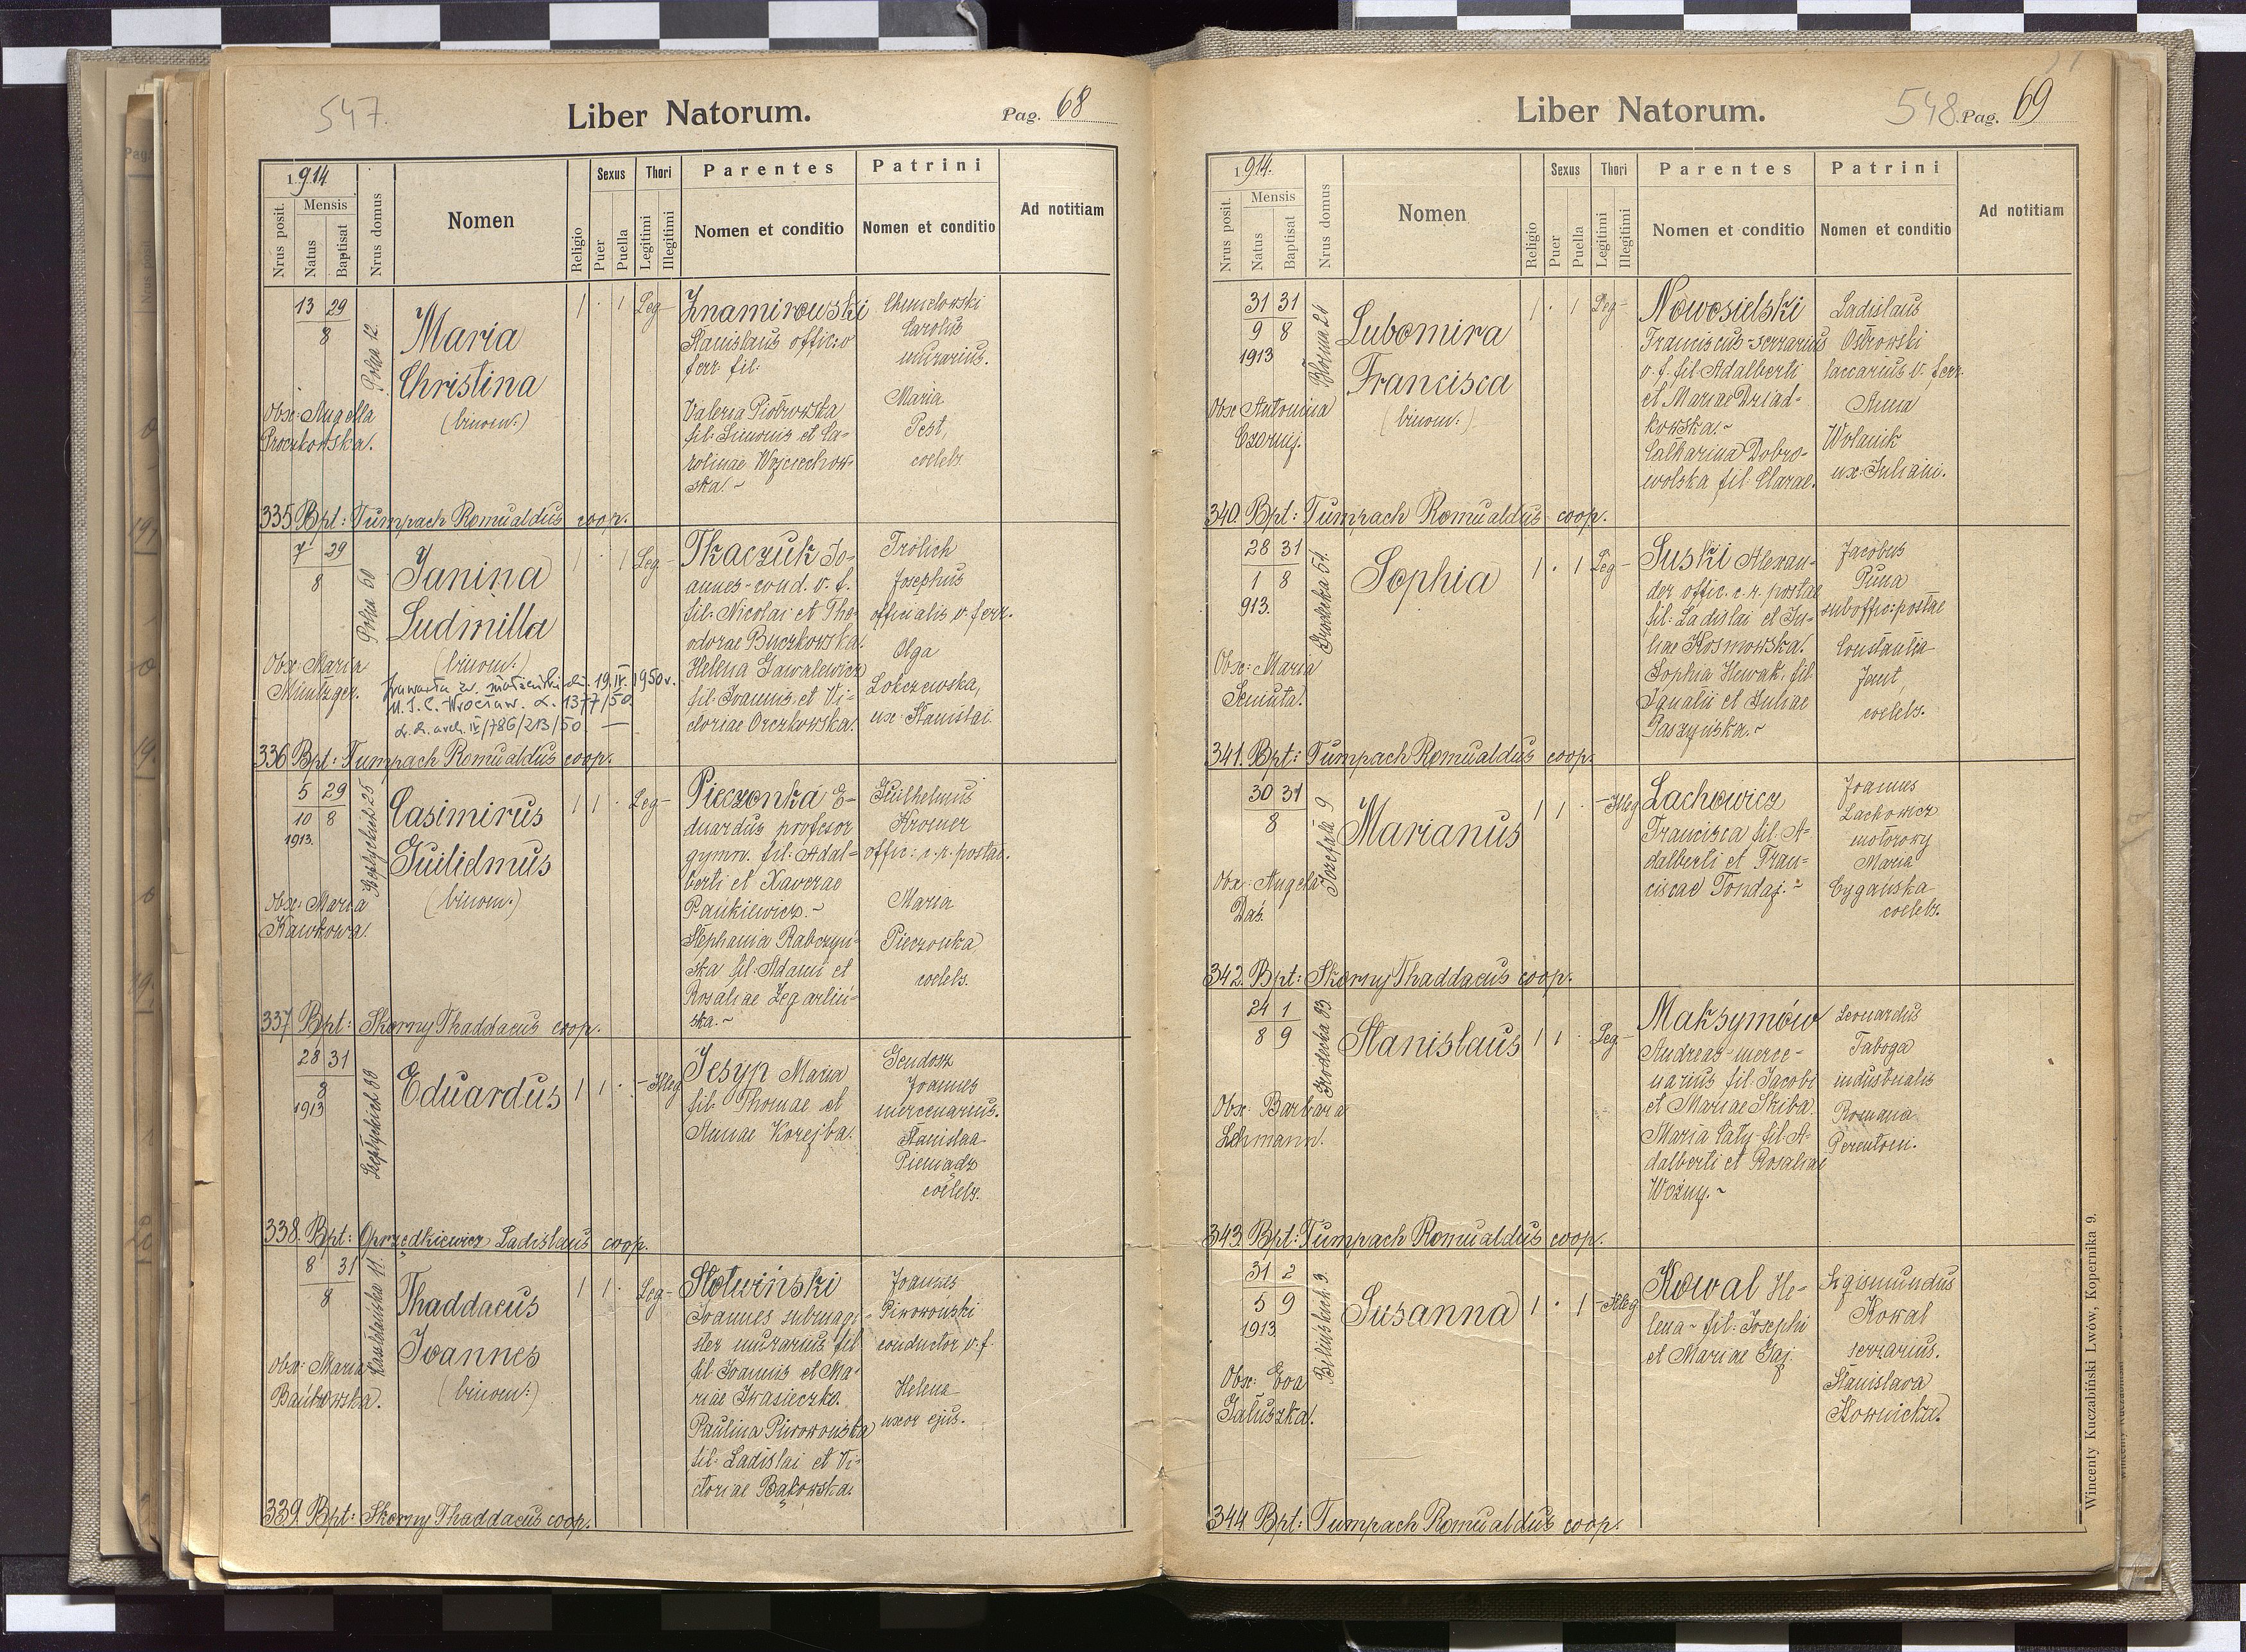 547.
Liber Natorum.
Pag. 68
1914
Nrus posit.
Mensis
Natus
Baptisat
Nrus domus
Nomen
Religio
Sexus
Puer
Puella
Thori
Legitimi
Illegitimi
Parentes
Nomen et conditio
Patrini
Nomen et conditio
Ad notitiam
13 29
8
Polna 12.
Maria
Christina
(binom:)
Obst: Angella
1 · 1 Leg-
Znamirowski
Stanislaus offic: v
ferr. fil.
Valeria Piotrowska
fil. Simonis et Ca-
rolinae Wojciechow-
ska.~
Chmelowski
Carolus
murarius.
Maria
Pest,
coelebs.
335 Bpt: Tumpach Romualdus coop.
7 29
8
Polna 60
Janina
Ludmilla
(binom:)
Obst: Maria
Müntzger.
19.IV.1950r.
U.S.C. Wrocław. L. 1377/50.
IV/786/213/50 —
1 · 1 Leg-
Tkaczuk Jo-
annes-cond. v. f.
fil. Nicolai et The-
odorae Buczkowska.
Helena Gawalewicz
fil. Joannis et Vi-
ctoriae Orczkowska.
Frölich
Josephus
officialis v. ferr.
Olga
ux. Stanislai
336 Bpt: Tumpach Romualdus coop.
5 29
10 8
1913.
Szeptyckich 25
Casimirus
Guilielmus
(binom.)
Obst: Maria
Kawkowa.
1 1 · Leg-
Pieczonka E-
duardus profesor
gymn. fil: Adal-
berti et Xaverae
Pankiewicz.~
Stephania Rabczyń-
ska fil. Adami et
Rosaliae Zegarliń-
ska.~
Guilhelmus
Kromer
offic: c. r. postae.
Maria
Pieczonka,
coelebs.
337 Bpt: Skorny Thaddaeus coop.
28 31
8
1913
Szeptyckich 33
Eduardus
1 1 · -Illeg
Jesyp Maria
fil. Thomae et
Annae Korejba.
Joannes
mercenarius.
Stanislaa
Pieniadz
coelebs.
338. Bpt: Oprzędkiewicz Ladislaus coop.
8 31
8
11.
Thaddaeus
Joannes
(binom:)
Obst: Maria
Bańkowska.
1 1 · Leg-
Słotwiński
Joannes submagi-
ster murarius fil
fil. Joannis et Ma-
riae Iwasieczko.
Paulina Piworowska
fil. Ladislai et Vi-
ctoriae Bąkowska.
Joannes
Piworowski
conductor v. f.
Helena
uxor ejus.
339. Bpt: Skorny Thaddaeus coop.
Liber Natorum.
548.
Pag. 69
1914.
Nrus posit.
Mensis
Natus
Baptisat
Nrus domus
Nomen
Religio
Sexus
Puer
Puella
Thori
Legitimi
Illegitimi
Parentes
Nomen et conditio
Patrini
Nomen et conditio
Ad notitiam
31 31
9 8
1913
Lubomira
Francisca
(binom:)
Obst: Antonina
Czornij.
1 · 1 Leg-
Nowosielski
Franciscus-serrarius
v. f. fil. Adalberti
et Mariae Dziad-
kowska.~
Catharina Dobro-
wolska fil. Clarae.
Ladislaus
Ostrowski
laccarius v. ferr.
Anna
Wolanik
ux. Juliani.
340. Bpt: Tumpach Romualdus coop.
28 31
1 8
913.
Grodecka 51.
Sophia
Obst: Maria
Semuta.
1 · 1 Leg-
Suski Alexan-
der offic. c. r. postae
fil. Ladislai et Ju-
liae Kosmowska.
Sophia Hewak, fil.
Ignatii et Juliae
Paszyńska.~
Jacobus
suboffic: postae
Constantia
Jant,
coelebs.
341. Bpt: Tumpach Romualdus coop.
30 31
8
Jozefata 9
Marianus
Obst: Angela
Daś.
1 1 · -Illeg
Lachowicz
Francisca fil. A-
dalberti et Fran-
ciscae Tondaj.~
Joannes
Lachowicz
motorowy
Maria
Cygańska
coelebs.
342. Bpt: Skorny Thaddaeus coop.
24 1
8 9
Grodecka 93
Stanislaus
Obst: Barbara
Lehmann.
1 1 · Leg-
Maksymów
Andreas-merce-
narius fil. Jacobi
et Mariae Skiba.
Maria Caty fil. A-
dalberti et Rosaliae
Woźny.~
Leonardus
Taboga
industrialis
Romana
343. Bpt: Tumpach Romualdus coop.
31 2
5 9
1913
3.
Susanna
Obst: Eva
Gałuszka.
1 · 1 -Illeg
Kowal He-
lena~ fil. Josephi
et Mariae Gaj.
Sigismundus
Kowal
serrarius.
Stanislava
Słowicka.
344. Bpt: Tumpach Romualdus coop.
Wincenty Kuczabiński Lwów, Kopernika 9.